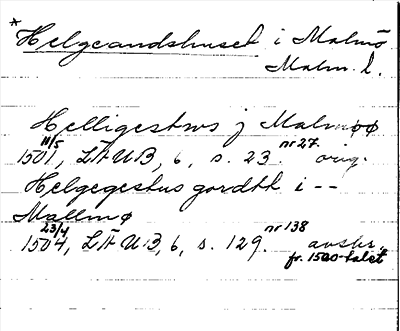 * Helgeandshuset i Malmö
Malm. l.
Helligestws j Malmøø
1501 11/5, LÄUB, 6, s. 23. nr 27. orig.
Helgegestus gordtt i --
Mallmø
1504 23/4, LÄUB, 6, s. 129. nr 138 avskr.
fr. 1500-talet